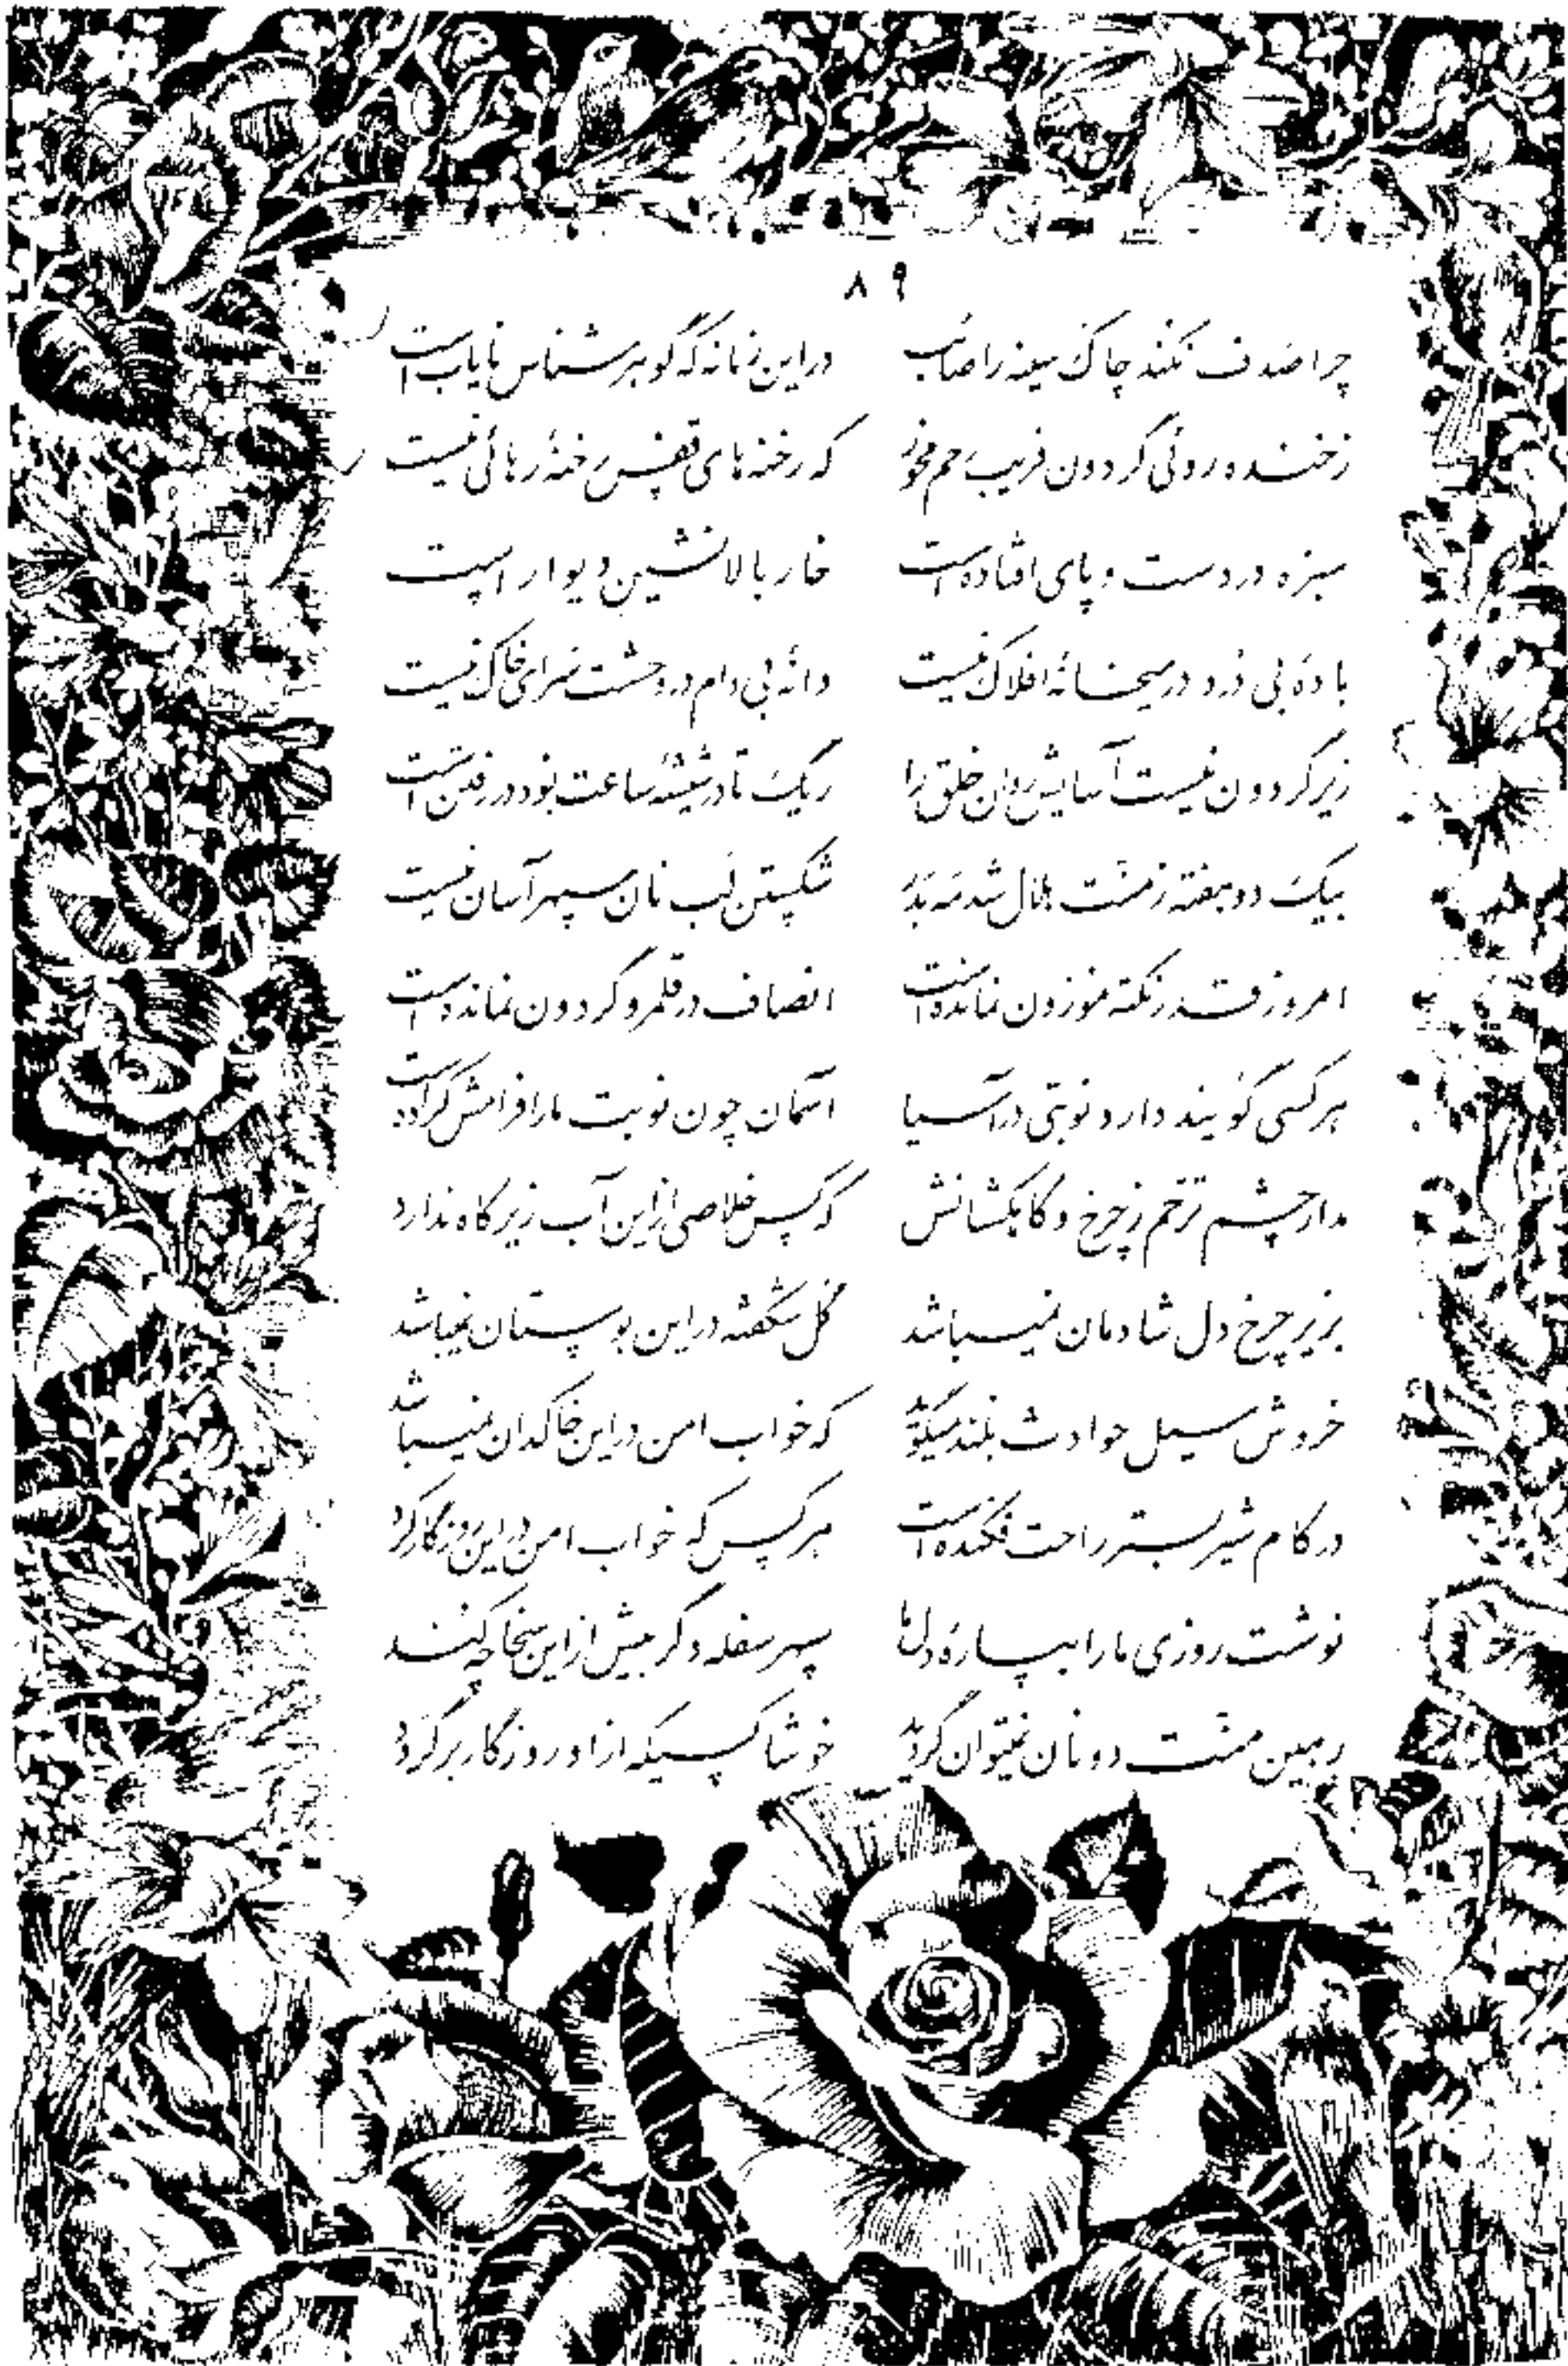 ۸۹
چرا صدف نکند چاک سینه را صائب در این زمانه که گوهر شناس نایاب است
ز خنده روئی گردون فریب رحم مخور که رخنه های قفس رخنهٔ رهائی نیست
سبزه در دست و پای افتاده است خار بالانشین دیوار است
بادهٔ بی دُرد در میخانهٔ افلاک نیست دانهٔ بی دام در وحشت سرای خاک نیست
زیر گردون نیست آسایش روان خلق را ریگ تا در شیشهٔ ساعت بود در رفتن است
بیک دو هفته ز منّت هلال شد مه بدر شکستن لب نان سپهر آسان نیست
امروز قدر نکته موزون نمانده است انصاف در قلمرو گردون نمانده است
هر کسی گویند دارد نوبتی در آسیا آسمان چون نوبت ما را فرامش کرده است
مدار چشم ترحّم ز چرخ و کاهکشانش که کس خلاصی از این آب زیر کاه ندارد
بزیر چرخ دل شادمان نمیباشد گل شکفته در این بوستان نمیباشد
خروش سیل حوادث بلند میگوید که خواب امن در این خاکدان نمیباشد
در کام شیر بستر راحت فکنده است هر کس که خواب امن در این روزگار کرد
نوشت روزی ما را بپارهٔ دلها سپهر سفله دگر بیش از این سخا چه کند
رهین منّت دونان نمیتوان گردید خوشا کسیکه از او روزگار برگردد